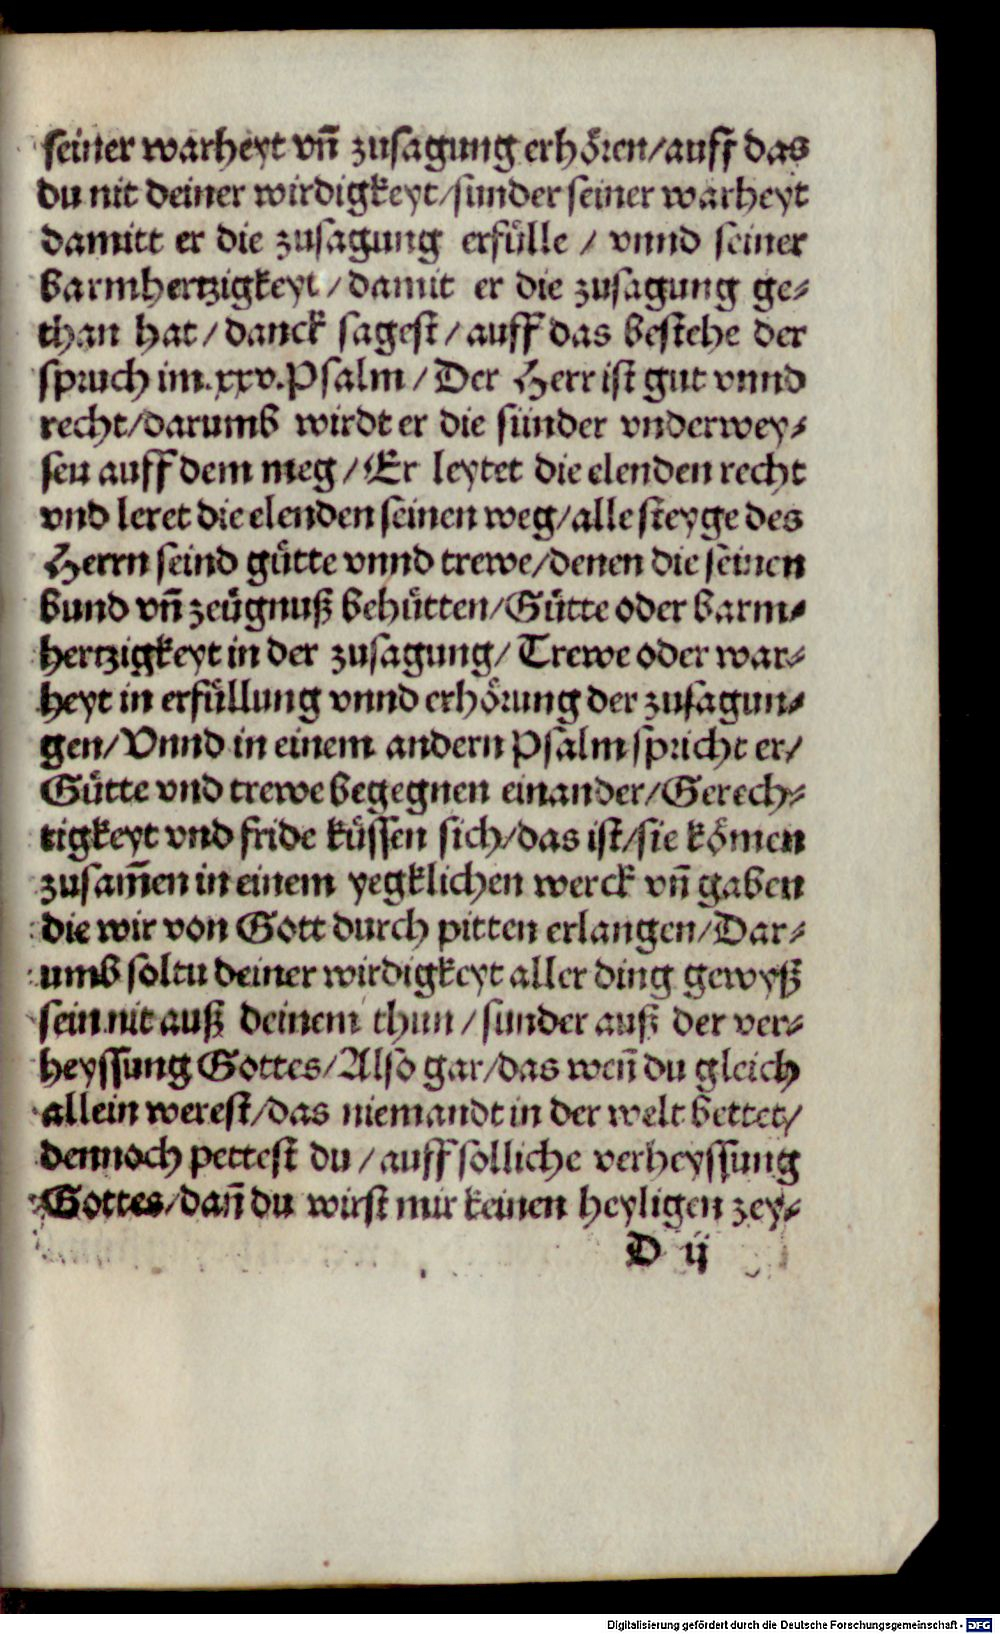 seiner warheyt vñ zusagung erhören/auff das
du nit deiner wirdigkeyt/sunder seiner warheyt
damitt er die zusagung erfülle / vnnd seiner
barmhertzigkeyt / damit er die zusagung ge-
than hat / danck sagest / auff das bestehe der
spruch im.xxv.Psalm / Der Herr ist gut vnnd
recht/darumb wirdt er die sünder vnderwey-
sen auff dem weg / Er leytet die elenden recht
vnd leret die elenden seinen weg/alle steyge des
Herrn seind gütte vnnd trewe/denen die seinen
bund vñ zeügnuß behütten/Gütte oder barm-
hertzigkeyt in der zusagung/ Trewe oder war-
heyt in erfüllung vnnd erhörung der zusagun-
gen/Vnnd in einem andern Psalm spricht er/
Gütte vnd trewe begegnen einander/Gerech-
tigkeyt vnd fride küssen sich/das ist/sie kömen
zusam̄en in einem yegklichen werck vñ gaben
die wir von Gott durch pitten erlangen/Dar-
umb soltu deiner wirdigkeyt aller ding gewyß
sein nit auß deinem thun / sunder auß der ver-
heyssung Gottes/Also gar/das weñ du gleich
allein werest/das niemandt in der welt bettet/
dennoch pettest du / auff solliche verheyssung
Gottes/dañ du wirst mir keinen heyligen zey-
D ij
Digitalisierung gefördert durch die Deutsche Forschungsgemeinschaft - DFG